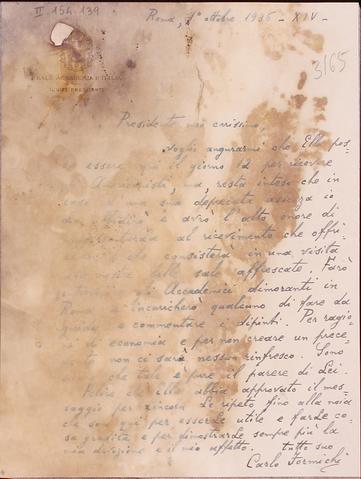 II 154.139
Roma, 1° ottobre 1936 - XIV -
3165
REALE ACCADEMIA D'ITALIA
IL VICE PRESIDENTE
Presidente mio carissimo,
voglio augurarmi che Ella pos-
essere qui il giorno 12 per ricevere
ma, resta inteso che in
caso di una sua deprecata assenza io
e avrò l'alto onore di
al ricevimento che offri-
che consisterà in una visita
delle sale affrescate. Farò
Accademici dimoranti in
incaricherò qualcuno di fare da
guida e commentare i dipinti. Per ragio
di economia e per non creare un prece-
te non ci sarà nessun rinfresco. Sono
che tale è pure il parere di Lei.
che Ella abbia approvato il mes-
saggio per Le ripeto fino alla noia
che son qui per esserLe utile e farLe co-
sa gradita e per dimostrarLe sempre più la
mia divozione e il mio affetto. tutto suo
Carlo Formichi